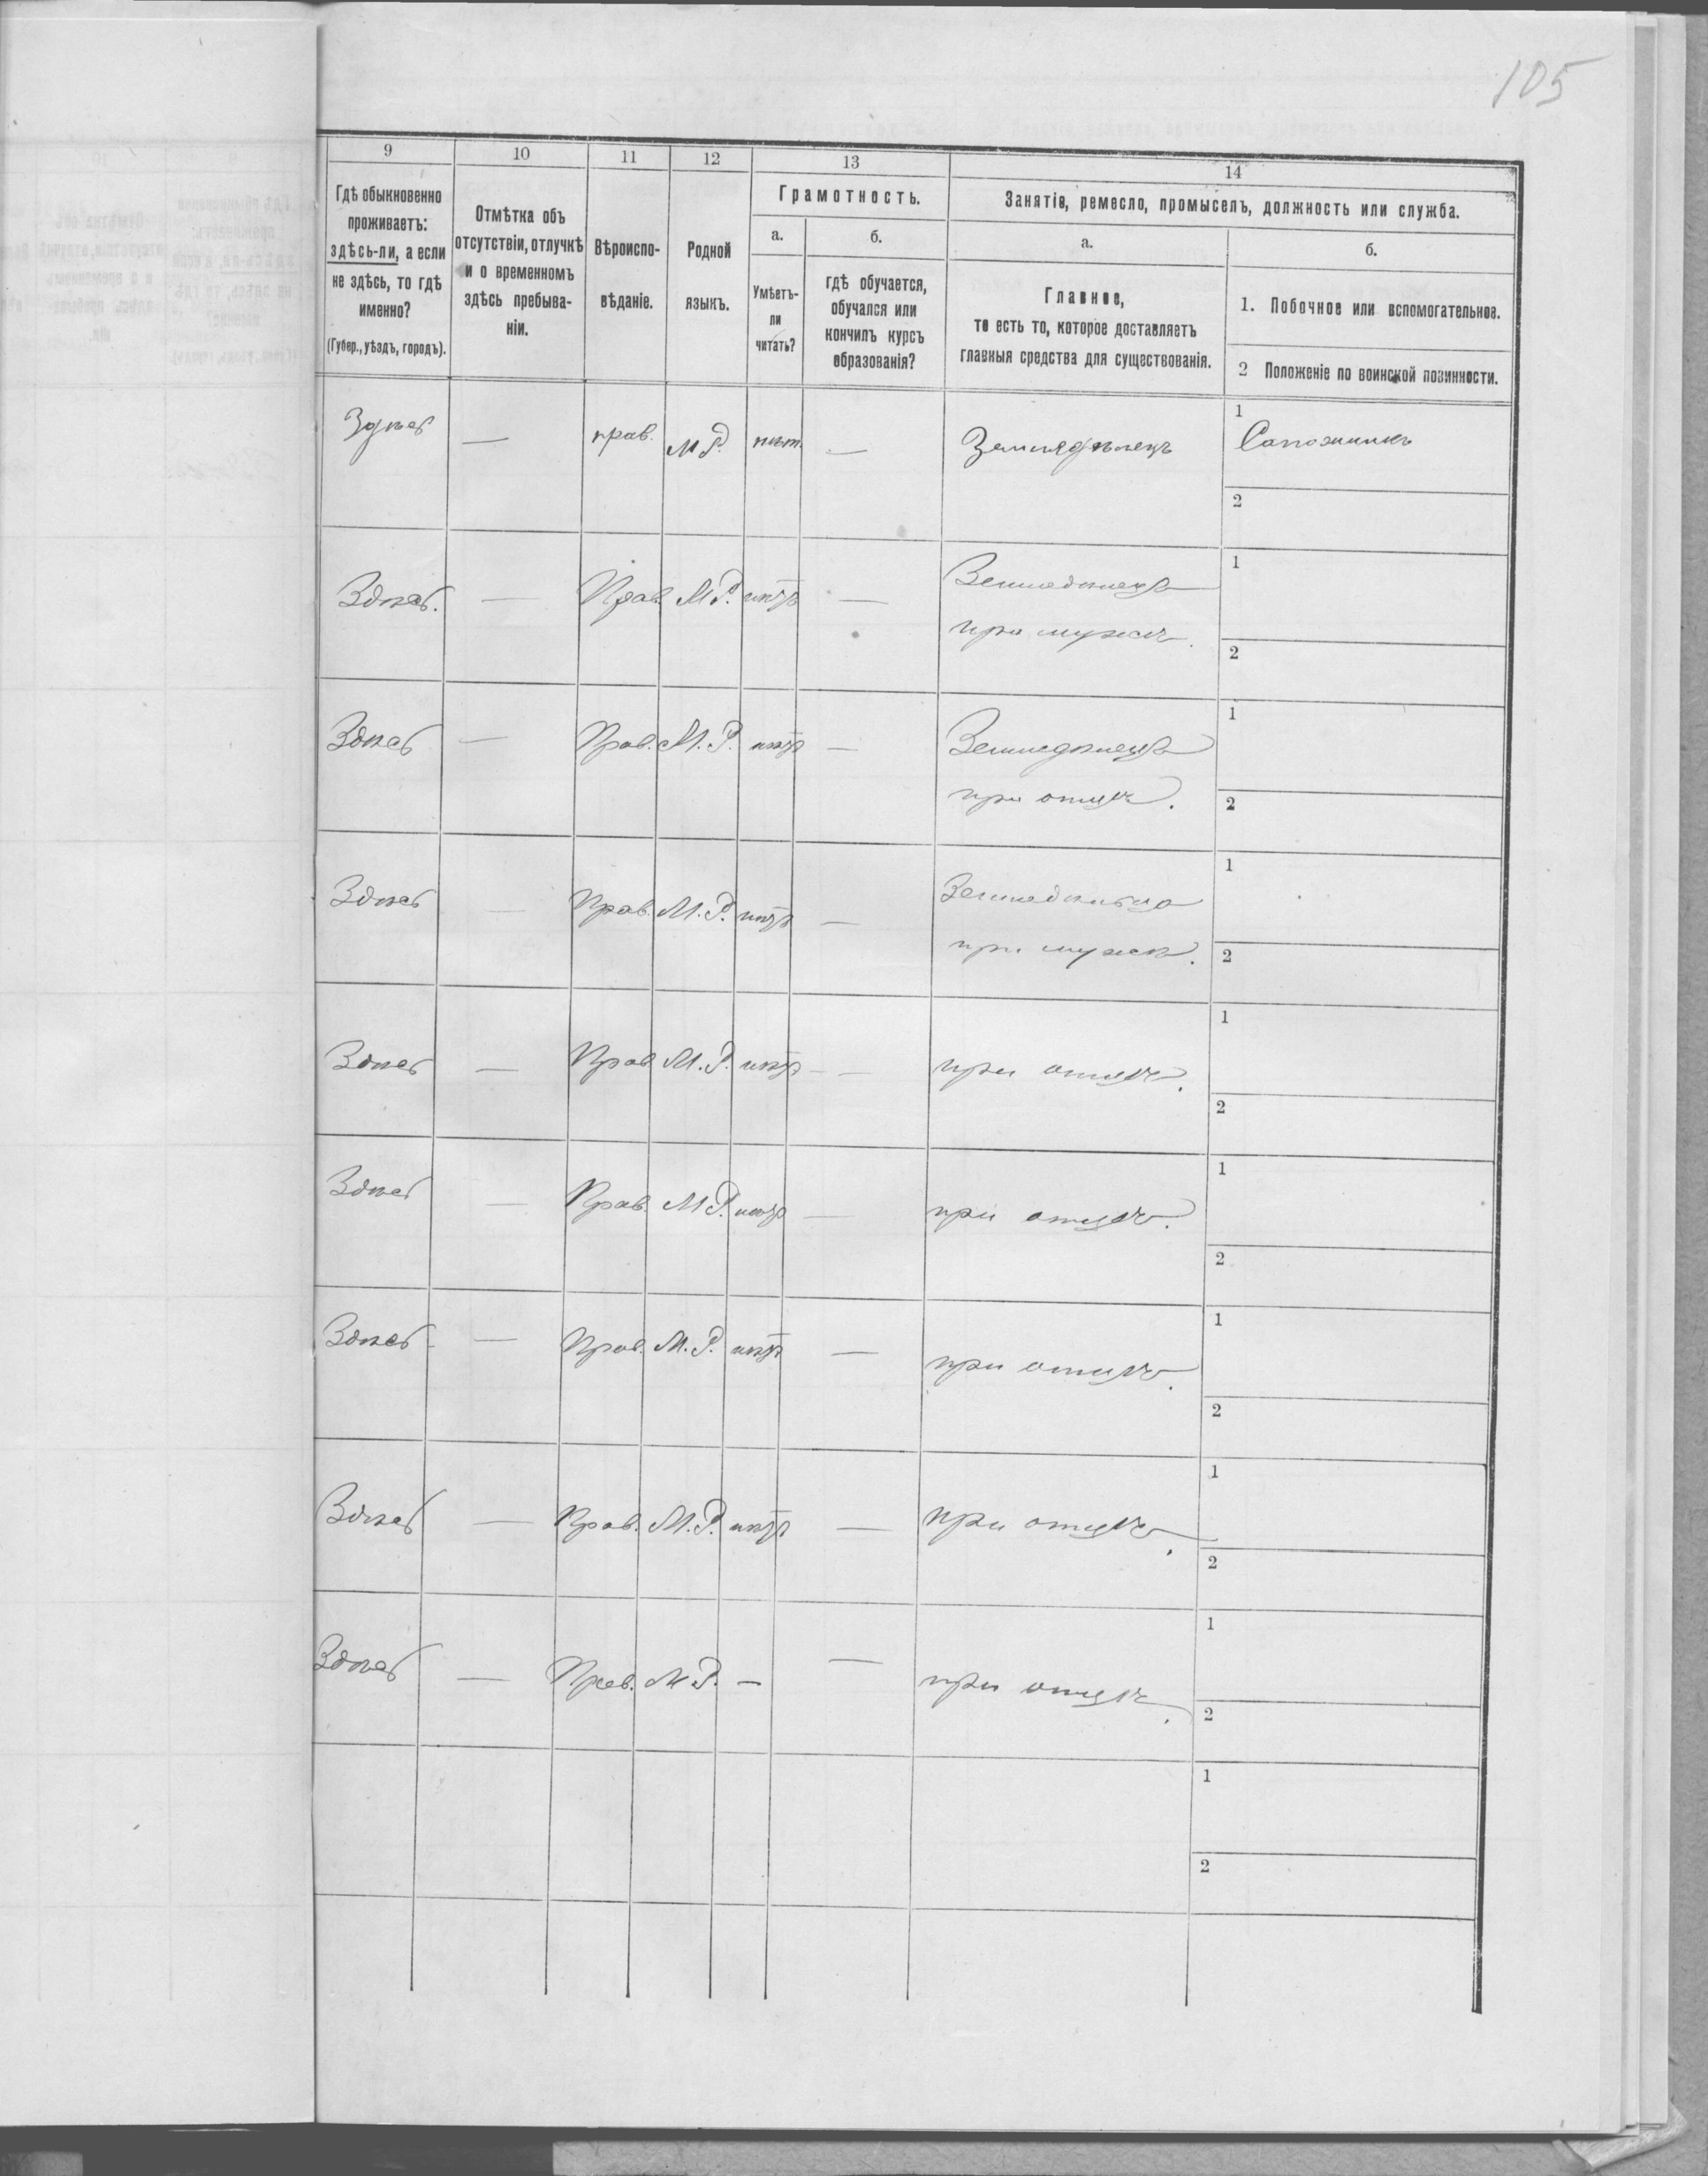 105
9 10 11 12 13 14
Гдѣ обыкновенно
проживаетъ:
здѣсь-ли, а если
не здѣсь, то гдѣ
именно?
(Губер., уѣздъ, городъ).
Отмѣтка объ
отсутствіи, отлучкѣ
и о временномъ
здѣсь пребыва-
ніи.
Вѣроиспо-
вѣданіе.
Родной
языкъ.
Грамотность.
а.
Умѣетъ-
ли
читать?
б.
гдѣ обучается,
обучался или
кончилъ курсъ
образованія?
Занятіе, ремесло, промыселъ, должность или служба.
а.
Главное,
то есть то, которое доставляетъ
главныя средства для существованія.
б.
1. Побочное или вспомогательное.
2 Положеніе по воинской повинности.
Здѣсь — прав. М Р. нѣт. — Земледѣлецъ 1 Сапожникъ
2
Здѣсь. — Прав. М.Р. нѣтъ — Земледѣлецъ 1
при мужѣ. 2
Здѣсь — Прав. М.Р. нѣтъ — Земледѣлецъ 1
при отцѣ. 2
Здѣсь — Прав. М.Р. нѣтъ — Земледѣльца 1
при мужѣ. 2
Здѣсь — Прав. М.Р. нѣтъ — при отцѣ. 1
2
Здѣсь — Прав. М.Р. нѣтъ — при отцѣ. 1
2
Здѣсь — Прав. М.Р. нѣтъ — при отцѣ. 1
2
Здѣсь — Прав. М.Р. нѣтъ — при отцѣ. 1
2
Здѣсь — Прав. М.Р. — — при отцѣ. 1
2
1
2